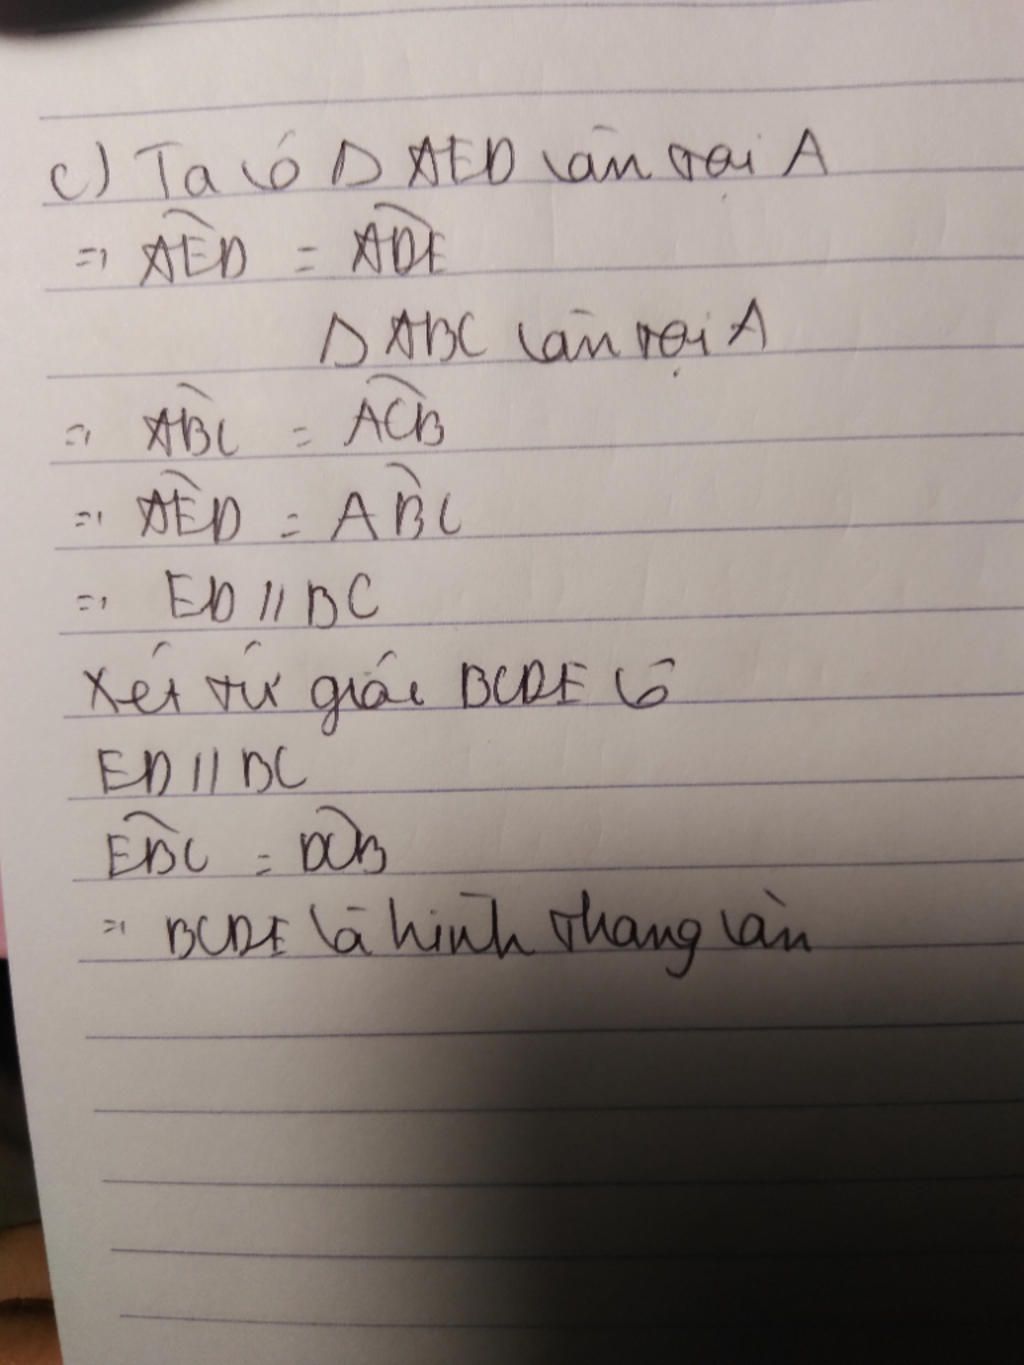 c) Ta có Δ AED cân tại A
=> \widehat{AED} = \widehat{ADE}
Δ ABC cân tại A
=> \widehat{ABC} = \widehat{ACB}
=> \widehat{AED} = \widehat{ABC}
=> ED // BC
Xét tứ giác BCDE có
ED // BC
\widehat{EBC} = \widehat{DCB}
=> BCDE là hình thang cân